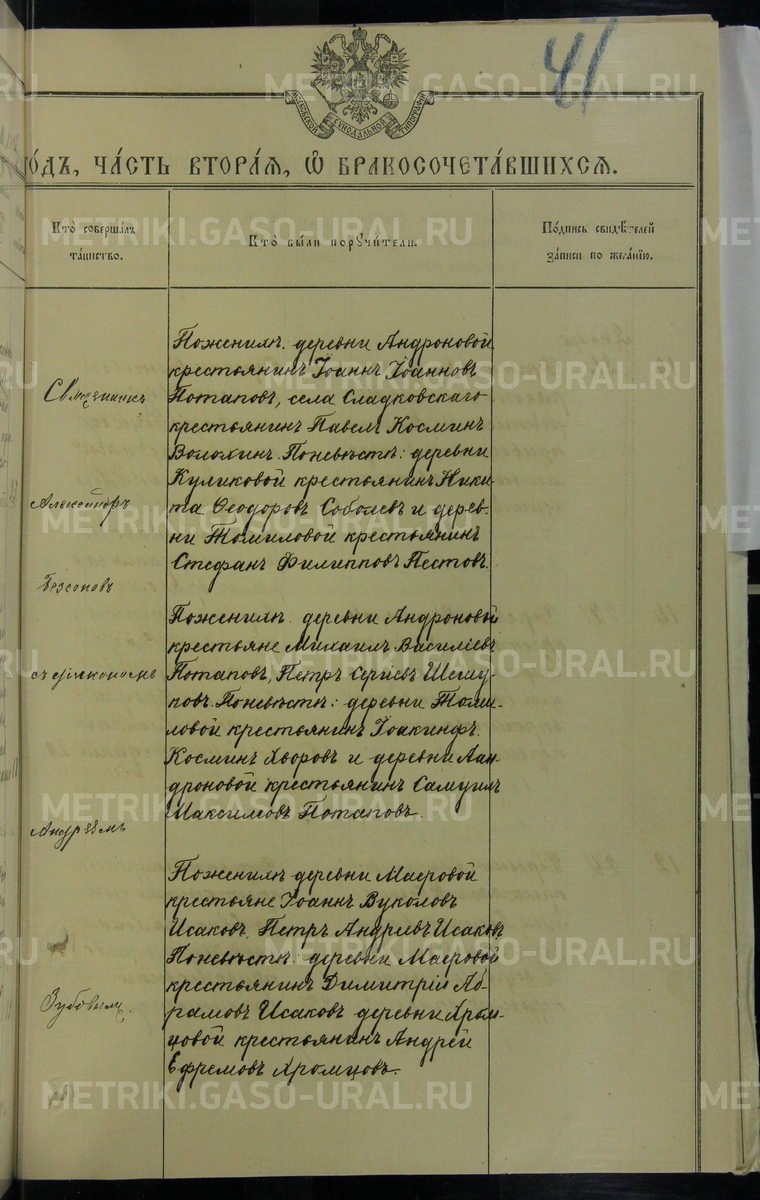 41
МОСКОВСКОЙ СѴНОДАЛЬНОЙ ТИПОГРАФІИ
ГО́ДЪ, ЧА́СТЬ ВТОРА́Я, Ѽ БРАКОСОЧЕТА́ВШИХСЯ.
Кто̀ соверша́лъ
та́инство.
Кто̀ бы́ли порꙋчи́тели.
По́дпись свидѣ́телей
за́писи по жела́нїю.
Священникъ
Александръ
Безсоновъ
съ діакономъ
Андреемъ
Зубовымъ.
По женихѣ: деревни Андроновой
крестьянинъ Іоаннъ Іоанновъ
Потаповъ, села Сладковскаго
крестьянинъ Павелъ Косминъ
Волохинъ. По невѣстѣ: деревни
Куликовой крестьянинъ Ники-
та Ѳеодоровъ Соболевъ и дерев-
ни Томиловой крестьянинъ
Стефанъ Филипповъ Пестовъ.
По женихѣ: деревни Андроновой
крестьяне Михаилъ Василіевъ
Потаповъ, Петръ Сергіевъ
По невѣстѣ: деревни Томи-
ловой крестьянинъ Іоакинфъ
Косминъ Хворовъ и деревни Ан-
дроновой крестьянинъ Самуилъ
Максимовъ Потаповъ.
По женихѣ деревни Маеровой
крестьяне Іоаннъ Вуколовъ
Исаковъ, Петръ Андреевъ Исаковъ
По невѣстѣ: деревни Маеровой
крестьянинъ Димитрій Аб-
рамовъ Исаковъ деревни Хром-
цовой крестьянинъ Андрей
Ефремовъ Хромцовъ.
METRIKI.GASO-URAL.RU